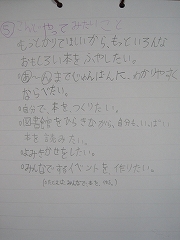 ⑤ やってみたいこと
もっとかりてほしいから、もっといろんな
おもしろい本をふやしたい。
・あ〜んまでじゅんばんに、わかりやすく
ならべたい。
・自分で、本をつくりたい。
・図書館をひらきながら、自分も、いっぱい
本を読みたい。
・よみきかせをしたい。
・みんなで イベントを作りたい。
みんなで本を